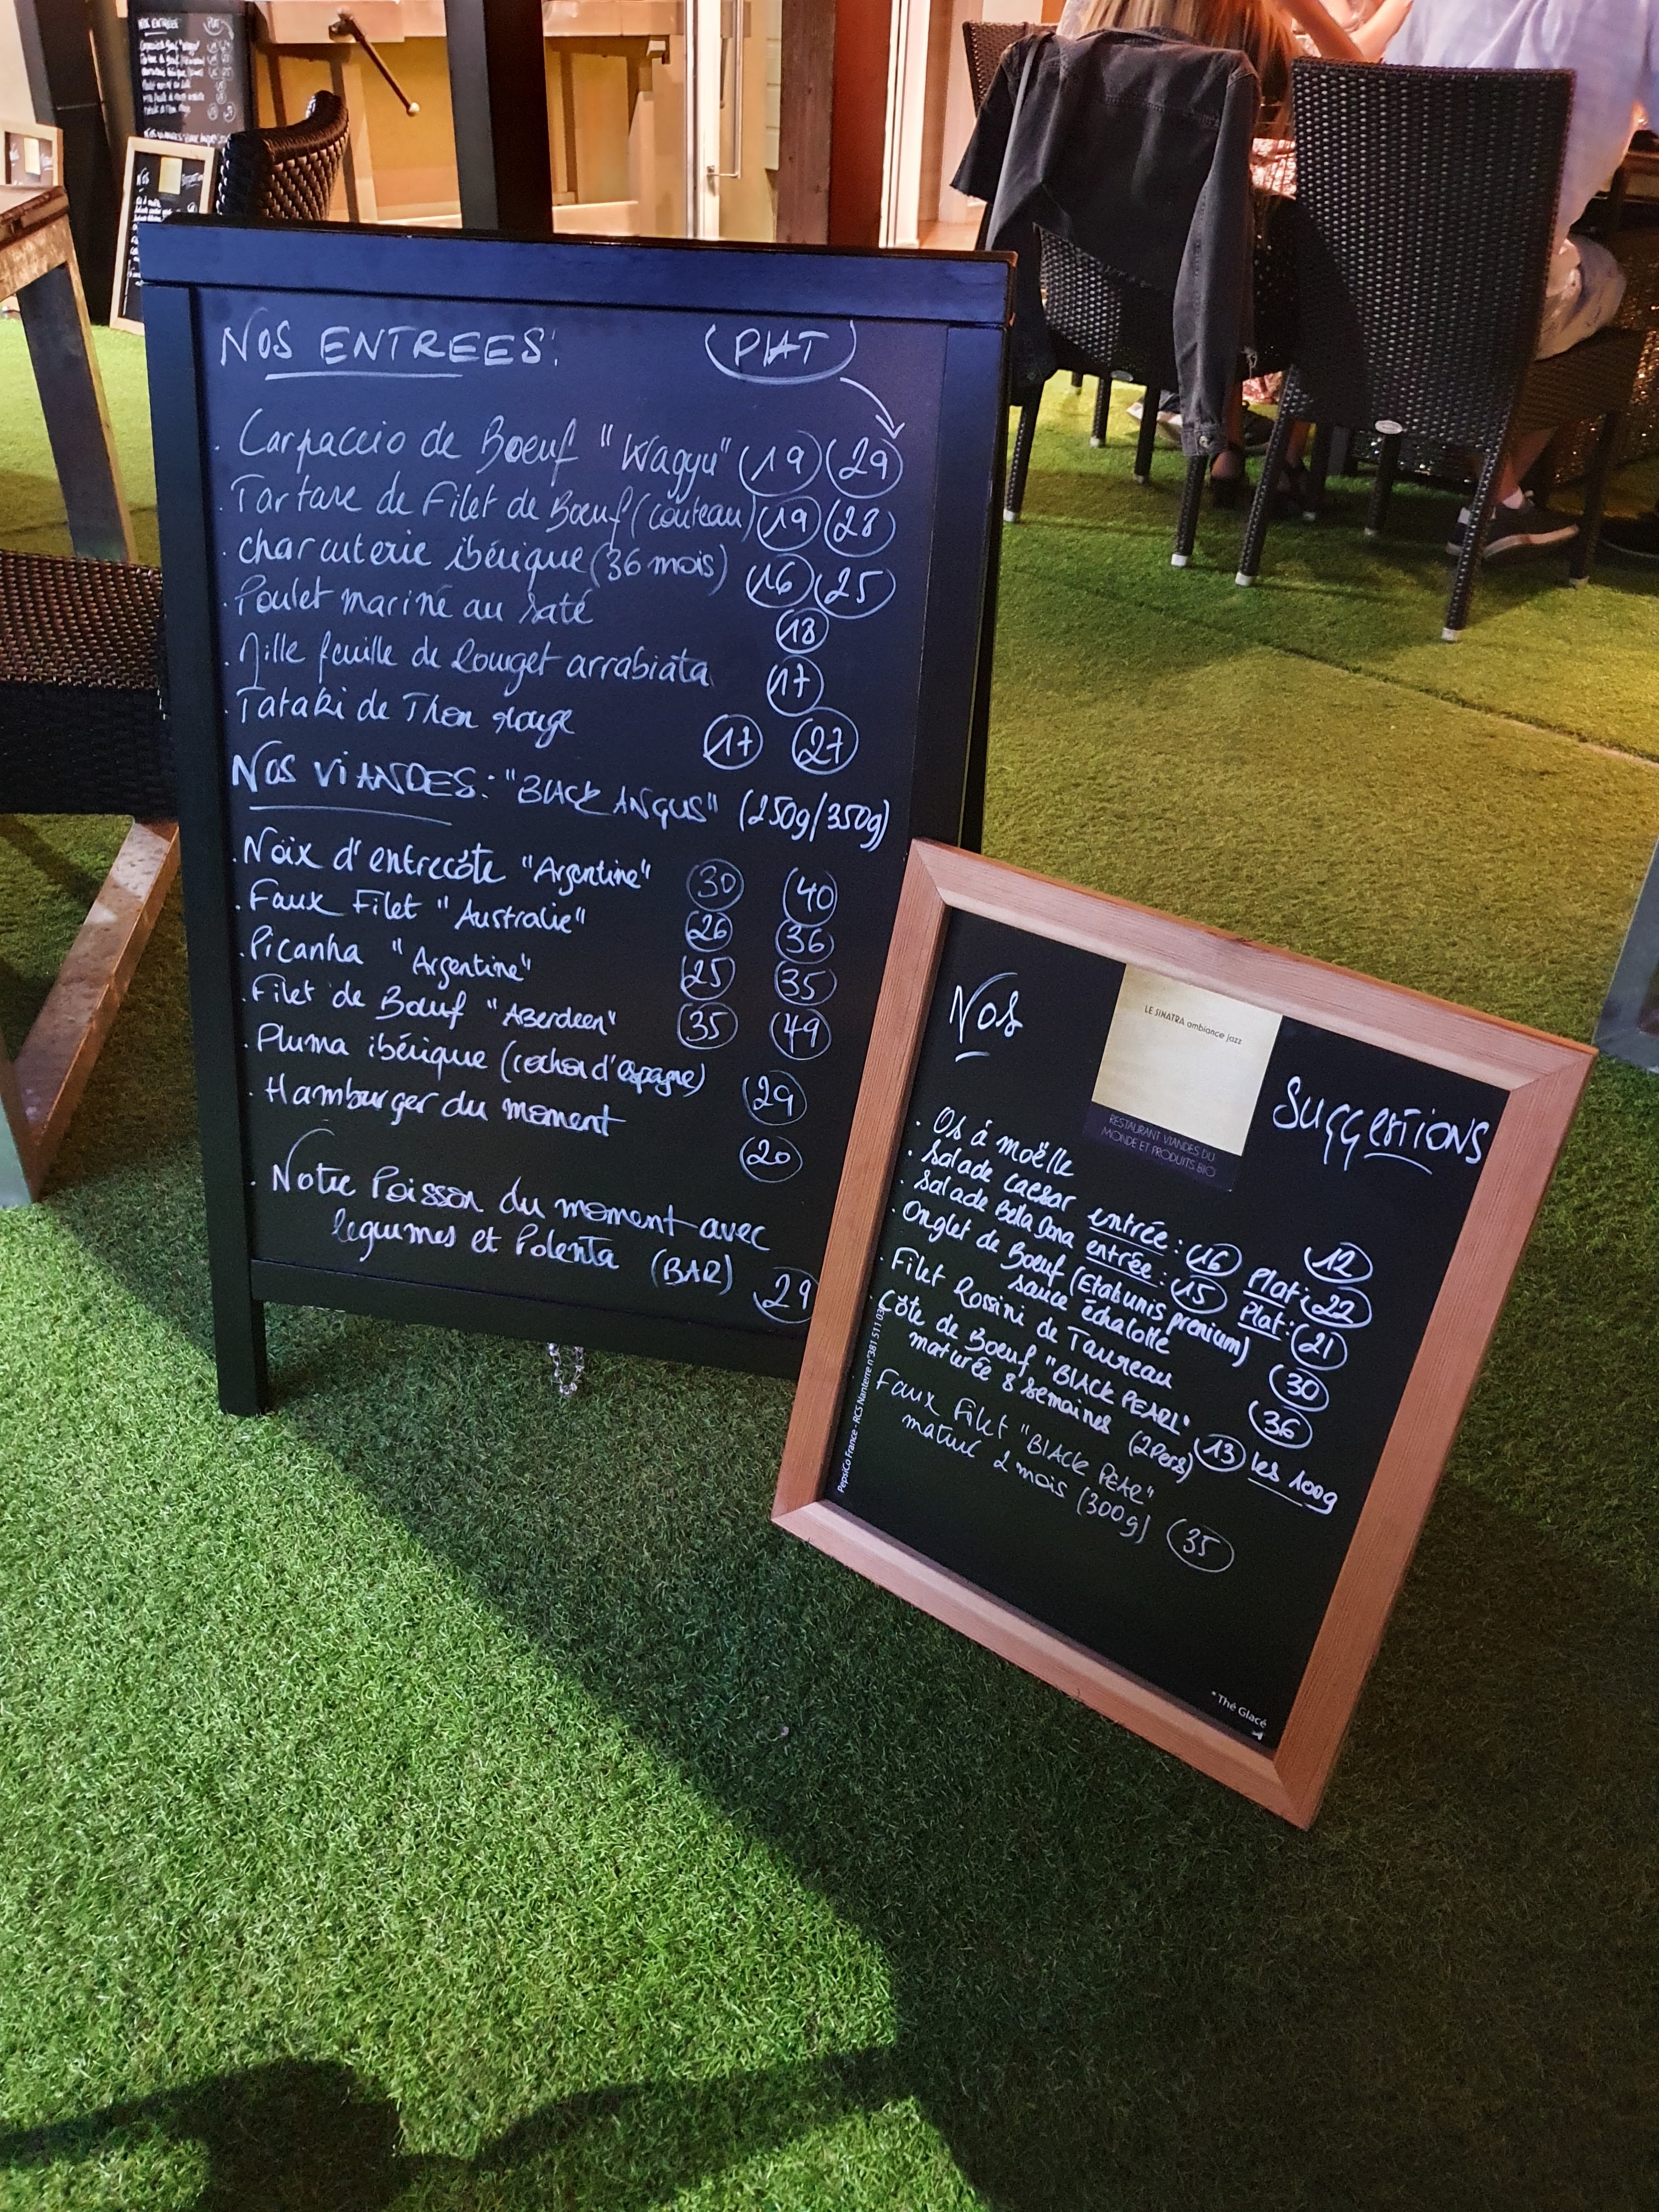 NOS ENTREES:
PLAT
. Carpaccio de Boeuf "Wagyu" 19 29
. Tartare de Filet de Boeuf (couteau) 19 28
. charcuterie ibérique (36 mois) 16 25
. Poulet mariné au saté 18
. Mille feuille de Rouget arrabiata 17
. Tataki de Thon rouge 17 27
NOS VIANDES: "BLACK ANGUS" (250g/350g)
. Noix d'entrecôte "Argentine" 30 40
. Faux Filet "Australie" 26 36
. Picanha "Argentine" 25 35
. Filet de Boeuf "ABerdeen" 35 49
. Pluma ibérique (cochon d'espagne) 29
. Hamburger du moment 20
. Notre Poisson du moment avec
legumes et Polenta (BAR) 29
Nos
LE SINATRA ambiance jazz
RESTAURANT VIANDES DU
MONDE ET PRODUITS BIO
Suggestions
. Os à moëlle 12
. Salade Caesar entrée: 16 Plat: 22
. Salade Bella Dona entrée: 15 Plat: 21
. Onglet de Boeuf (Etats unis premium)
sauce échalotte 30
. Filet Rossini de Taureau 36
. Côte de Boeuf "BLACK PEARL"
maturée 8 semaines (2Pers) 13 les 100g
Faux Filet "BLACK PEAR"
maturé 2 mois (300g) 35
PepsiCo France - RCS Nanterre n°381 511 03
* Thé Glacé
NOS ENTREES PLAT